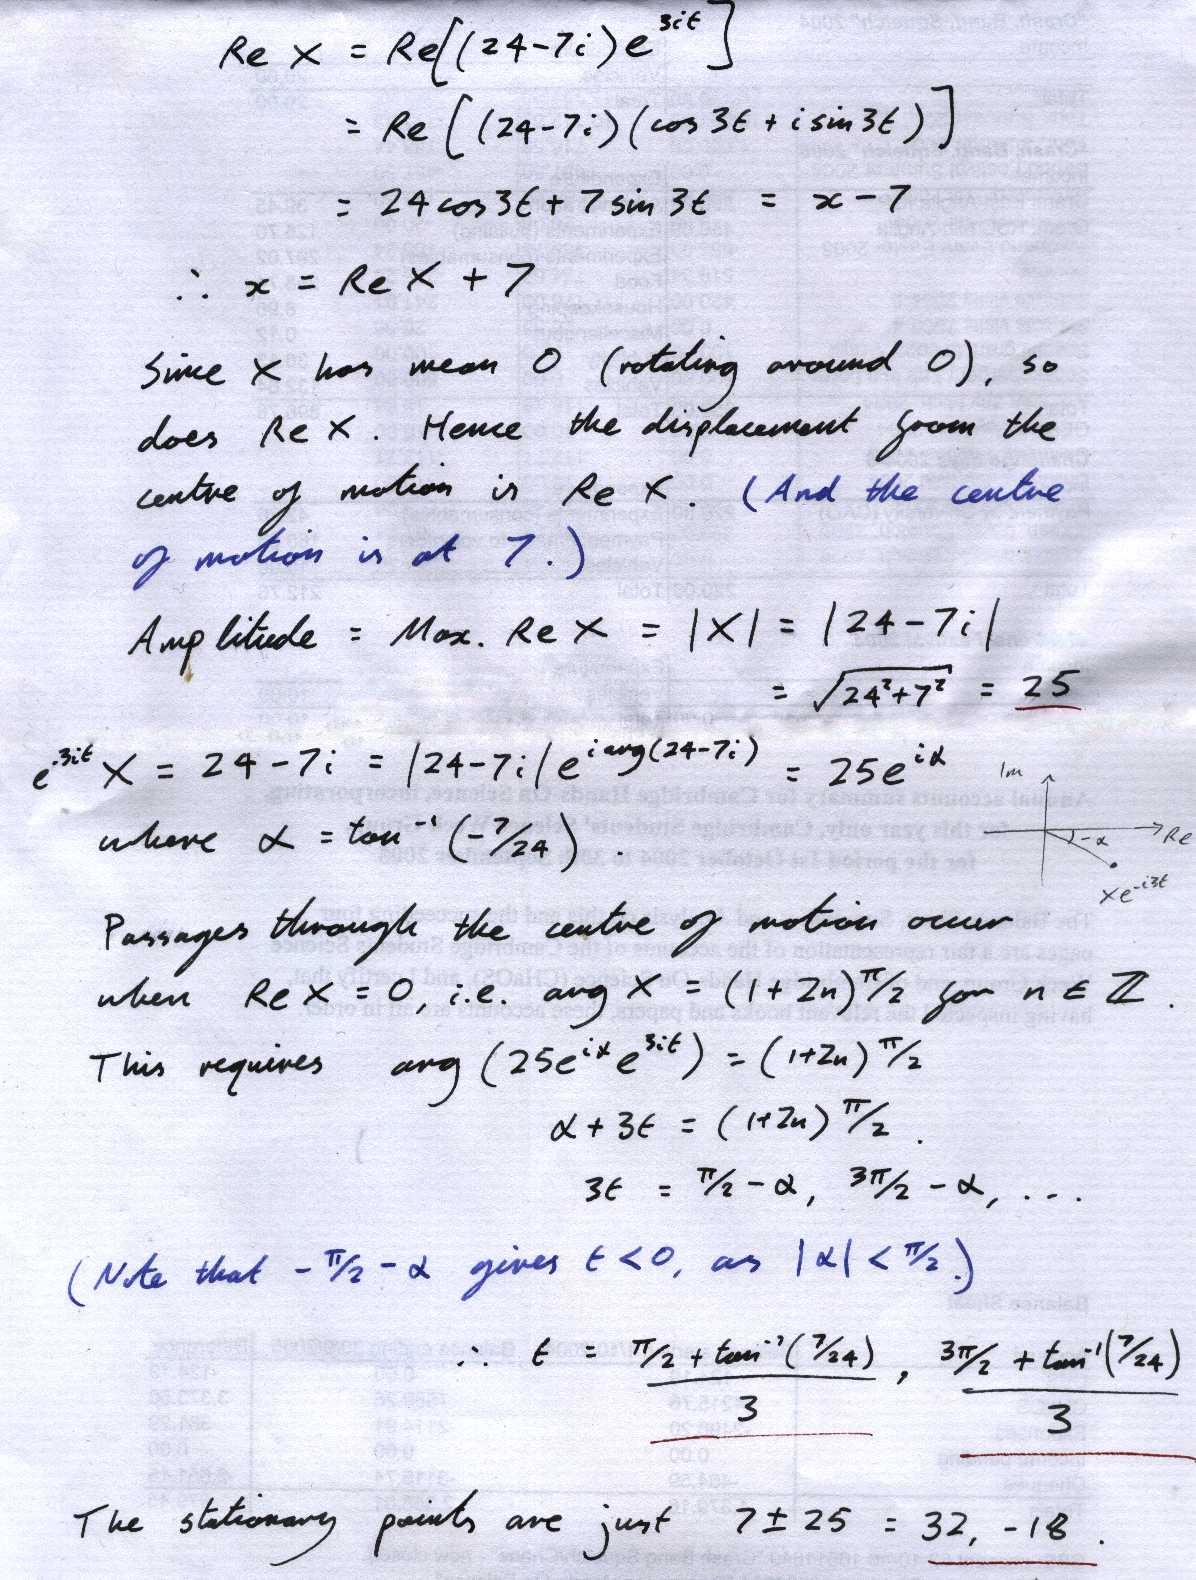 Re X = Re[(24-7i)e^{3it}]
= Re[(24-7i)(cos 3t + i sin 3t)]
= 24 cos 3t + 7 sin 3t = x - 7
∴ x = Re X + 7
Since X has mean 0 (rotating around 0), so
does Re X. Hence the displacement from the
centre of motion is Re X. (And the centre
of motion is at 7.)
Amplitude = Max. Re X = |X| = |24-7i|
= √(24²+7²) = 25
e^{-3it} X = 24-7i = |24-7i| e^{i arg(24-7i)} = 25e^{iα}
Im
where α = tan⁻¹(-7/24).
-α
Re
Xe^{-i3t}
Passages through the centre of motion occur
when Re X = 0, i.e. arg X = (1+2n)π/2 for n ∈ ℤ.
This requires arg(25e^{iα}e^{3it}) = (1+2n)π/2
α + 3t = (1+2n)π/2.
3t = π/2 - α, 3π/2 - α, ...
(Note that -π/2 - α gives t < 0, as |α| < π/2.)
∴ t = (π/2 + tan⁻¹(7/24))/3, (3π/2 + tan⁻¹(7/24))/3
The stationary points are just 7 ± 25 = 32, -18.